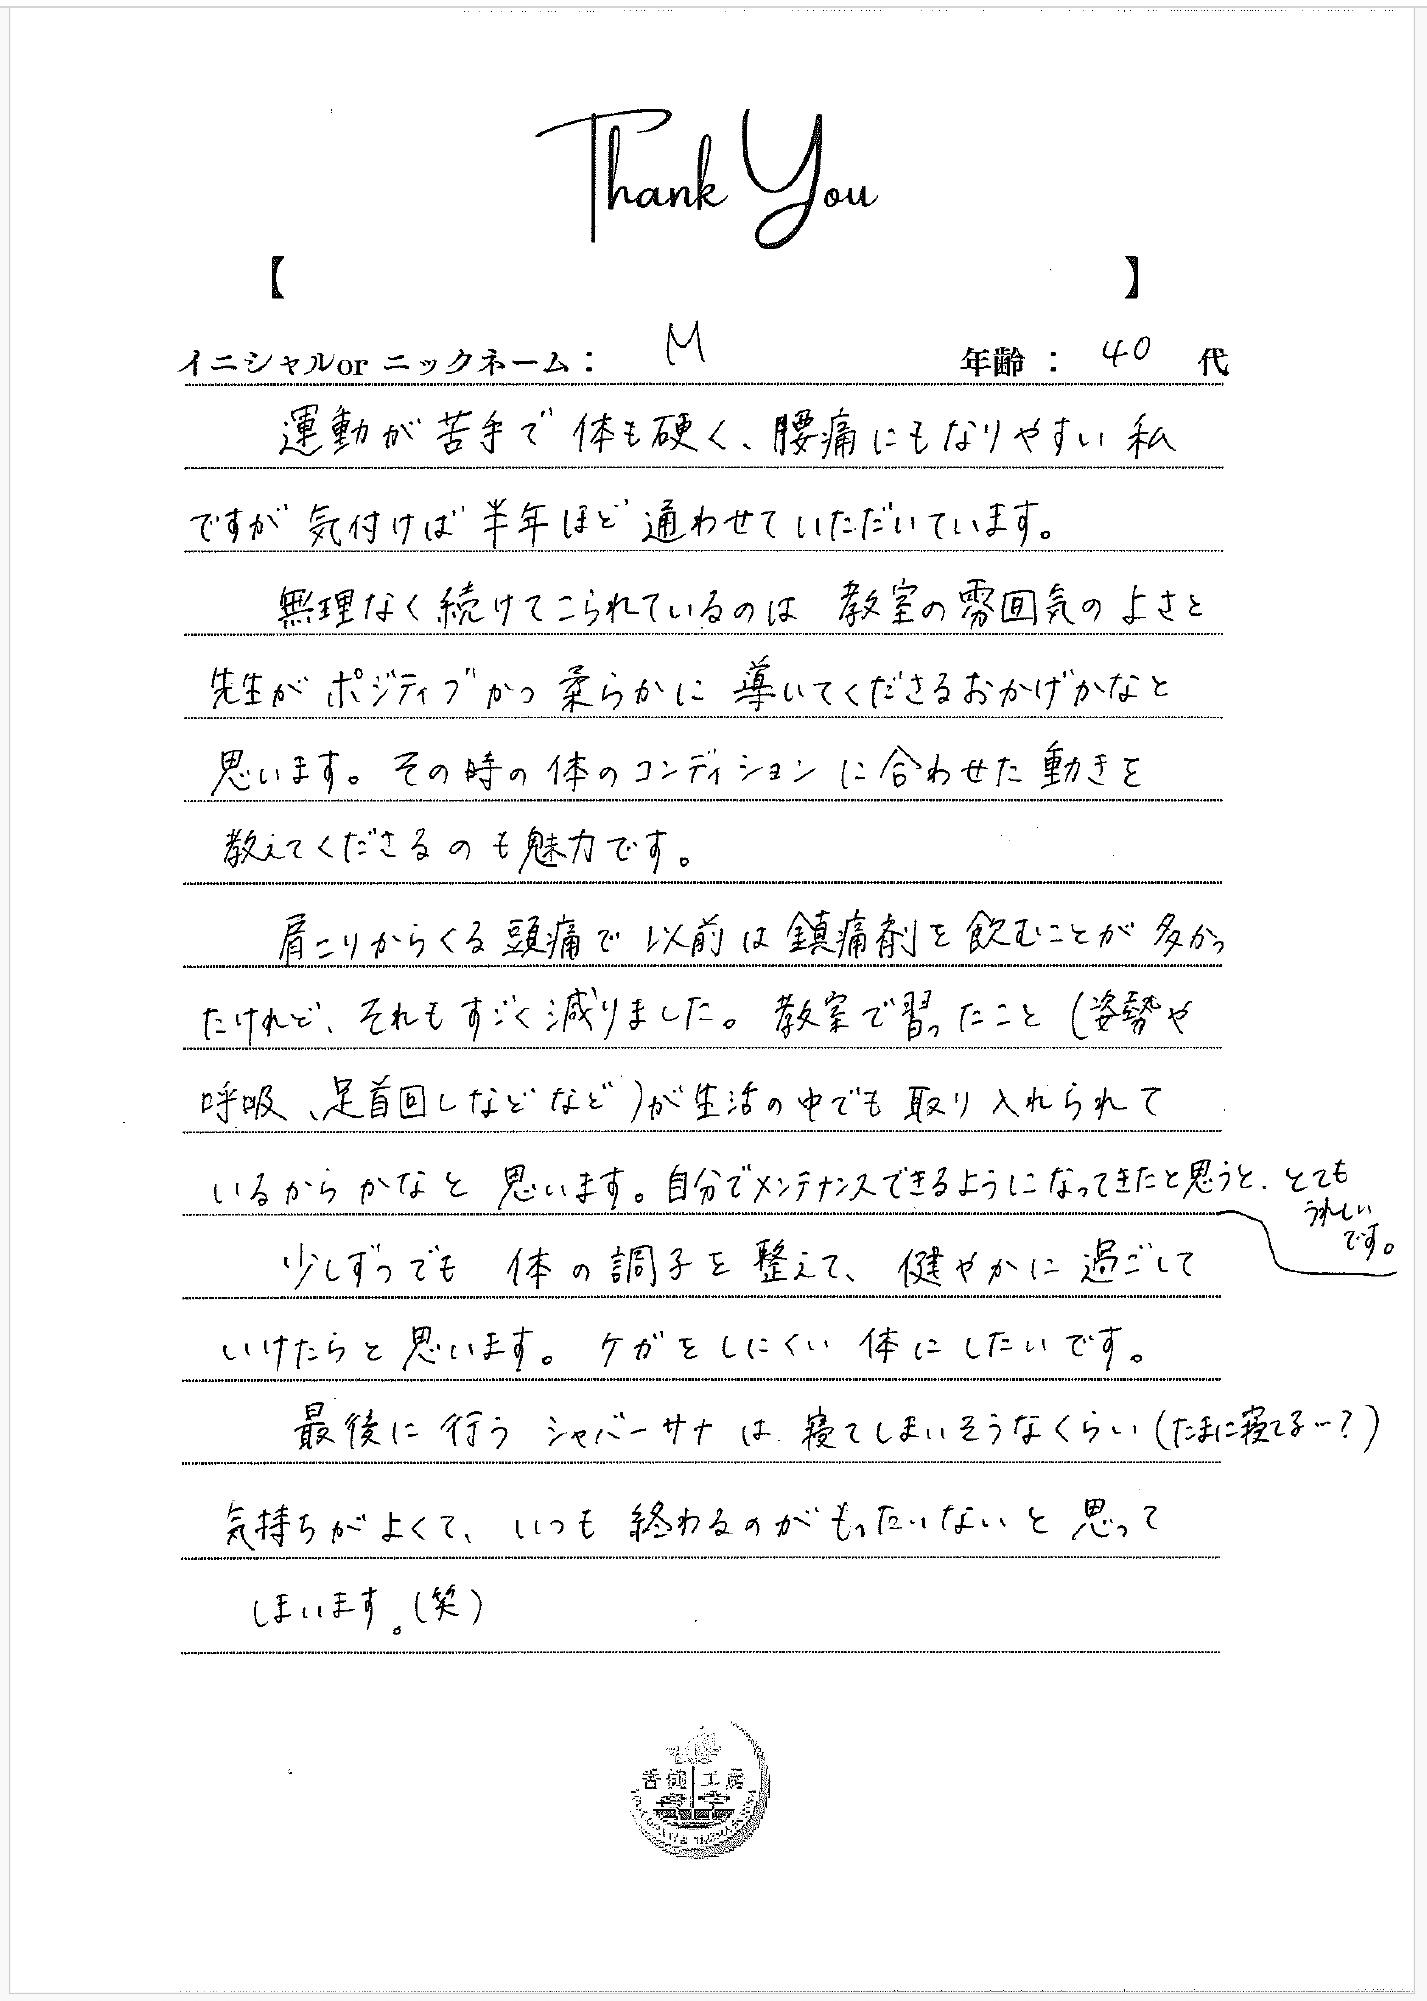 Thank You
【 】
イニシャルor ニックネーム： M 年齢： 40 代
運動が苦手で体も硬く、腰痛にもなりやすい私
ですが気付けば半年ほど通わせていただいています。
無理なく続けてこられているのは 教室の雰囲気のよさと
先生がポジティブかつ柔らかに導いてくださるおかげかなと
思います。その時の体のコンディションに合わせた動きを
教えてくださるのも魅力です。
肩こりからくる頭痛で以前は鎮痛剤を飲むことが多かっ
たけれど、それもすごく減りました。教室で習ったこと(姿勢や
呼吸、足首回しなどなど)が生活の中でも取り入れられて
いるからかなと思います。自分でメンテナンスできるようになってきたと思うと、とても
うれしい
です。
少しずつでも 体の調子を整えて、健やかに過ごして
いけたらと思います。ケガをしにくい体にしたいです。
最後に行うシャバーサナは寝てしまいそうなくらい(たまに寝てる…？)
気持ちがよくて、いつも終わるのがもったいないと思って
しまいます。(笑)
工房